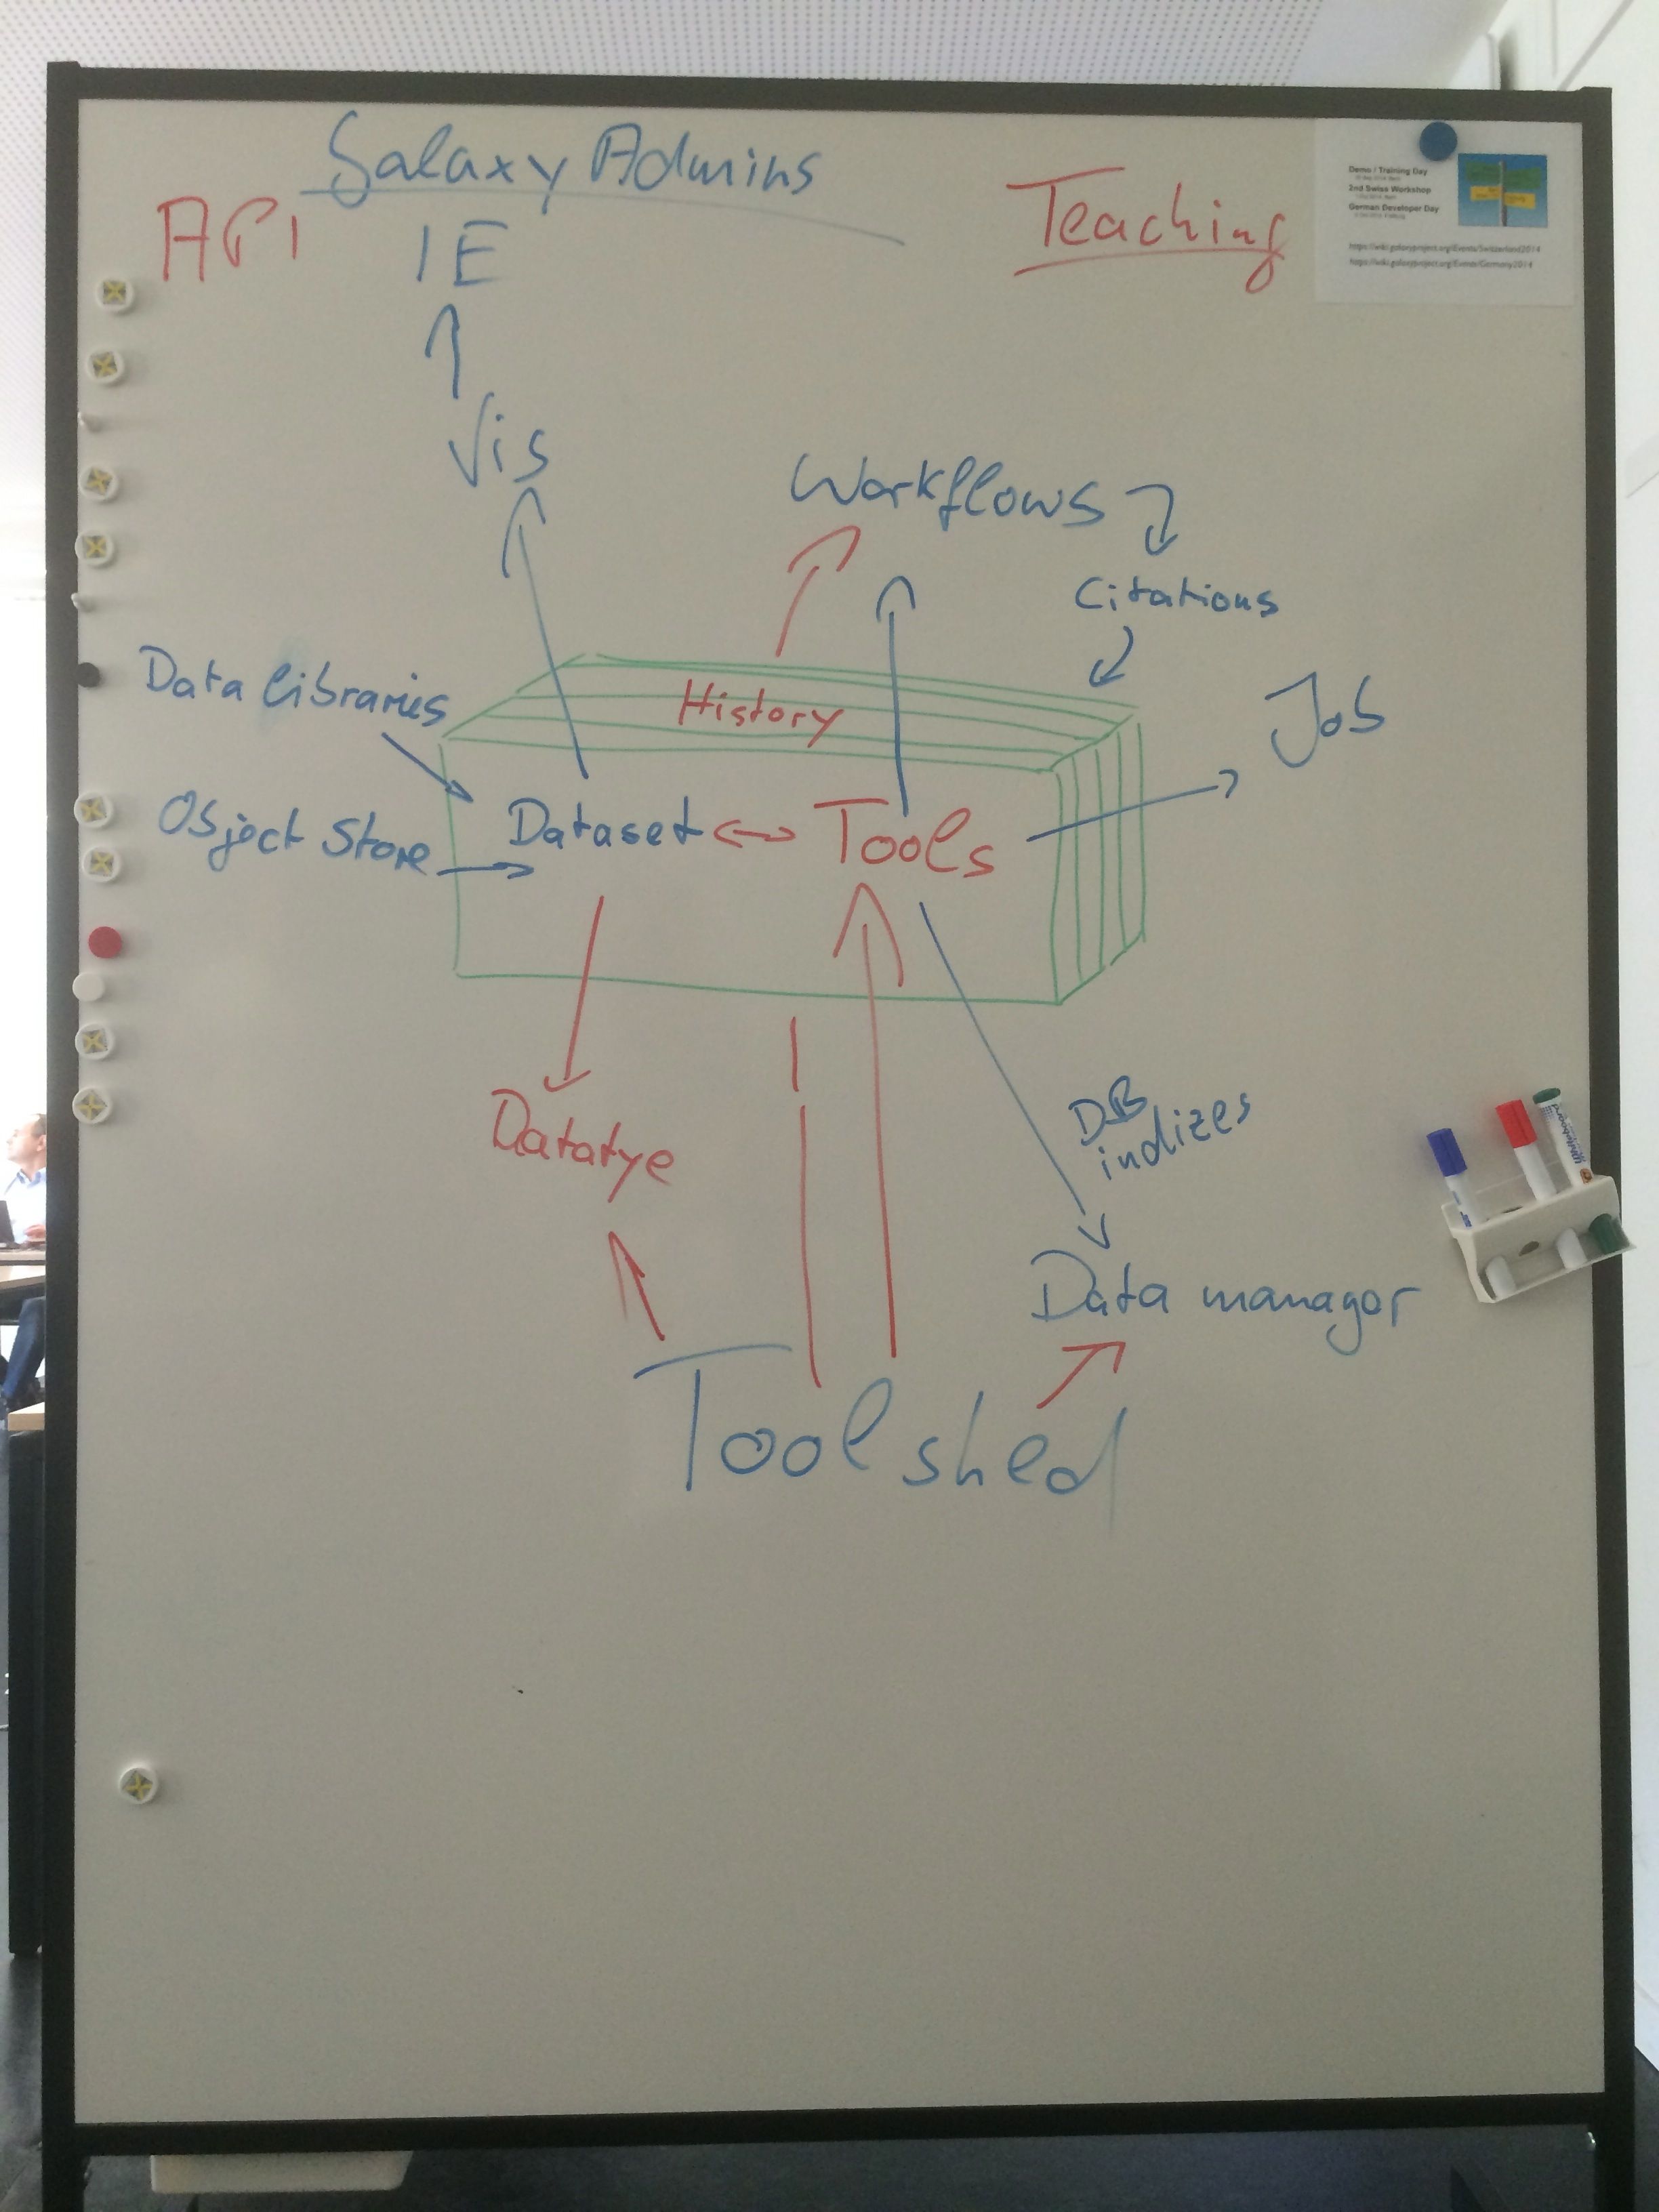 Galaxy Admins
API
IE
Teaching
Demo / Training Day
2nd Swiss Workshop
German Developer Day
https://wiki.galaxyproject.org/Events/Switzerland2014
https://wiki.galaxyproject.org/Events/Germany2014
Vis
Workflows
Citations
Data libraries
History
Job
Object Store
Dataset
Tools
Datatye
DB
indizes
Data manager
Tool shed